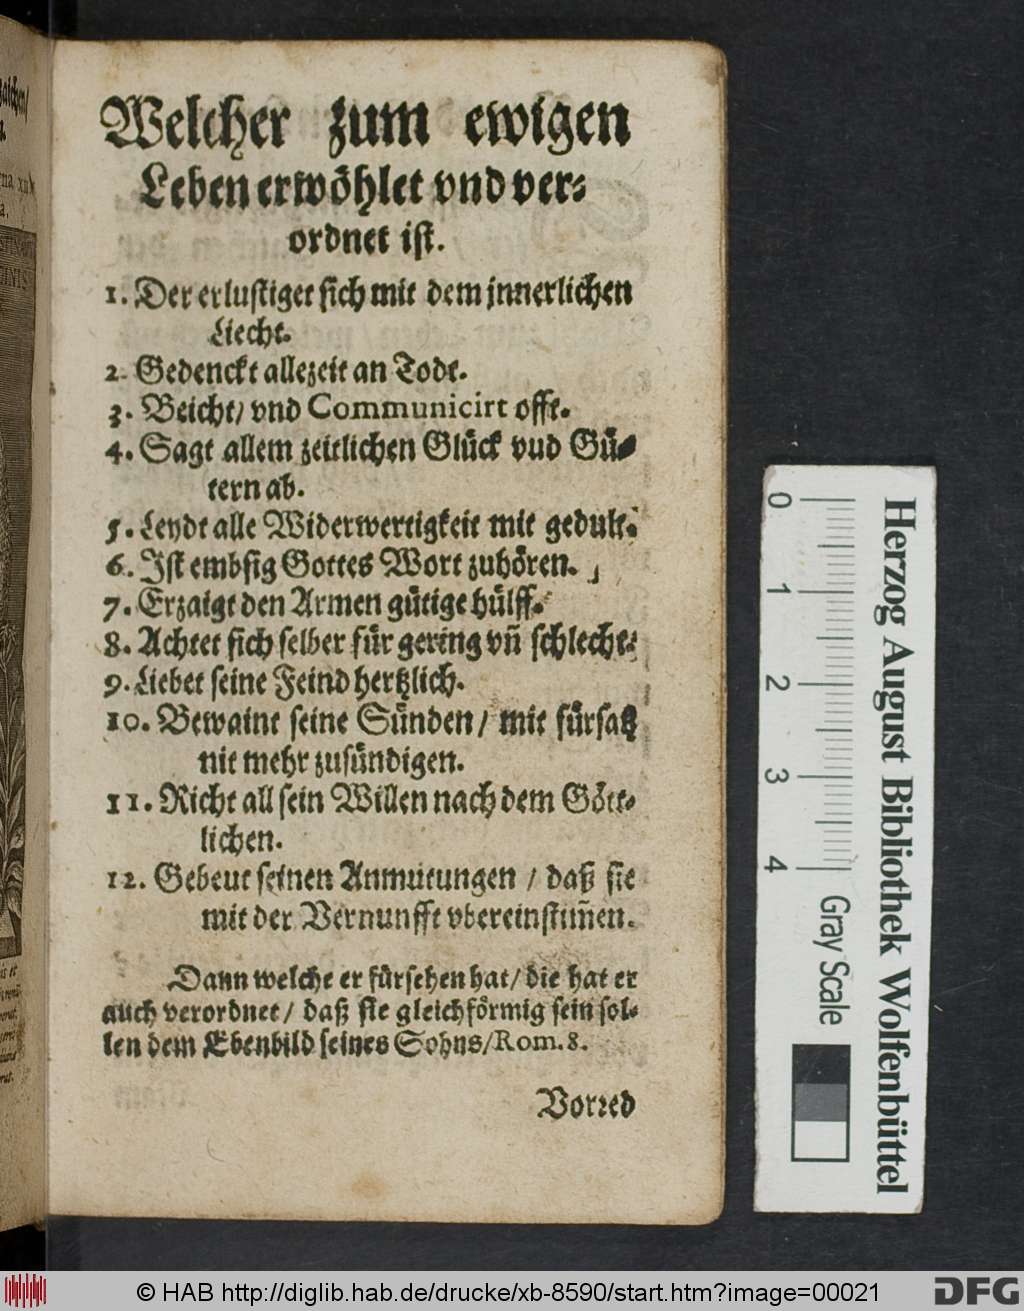 Welcher zum ewigen
Leben erwöhlet vnd ver-
ordnet ist.
1. Der erlustiget sich mit dem jnnerlichen
Liecht.
2. Gedenckt allezeit an Todt.
3. Beicht/ vnd Communicirt offt.
4. Sagt allem zeitlichen Glück vud Gü-
tern ab.
5. Leydt alle Widerwertigkeit mit gedult.
6. Ist embsig Gottes Wort zuhören.
7. Erzaigt den Armen gütige hülff.
8. Achtet sich selber für gering vn̄ schlecht.
9. Liebet seine Feind hertzlich.
10. Bewaint seine Sünden / mit fürsatz
nit mehr zusündigen.
11. Richt all sein Willen nach dem Gött-
lichen.
12. Gebeut seinen Anmutungen / daß sie
mit der Vernunfft vbereinstim̄en.
Dann welche er fürsehen hat/ die hat er
auch verordnet/ daß sie gleichförmig sein sol-
len dem Ebenbild seines Sohns/Rom. 8.
Vorred
0 1 2 3 4
Gray Scale
Herzog August Bibliothek Wolfenbüttel
© HAB http://diglib.hab.de/drucke/xb-8590/start.htm?image=00021
DFG